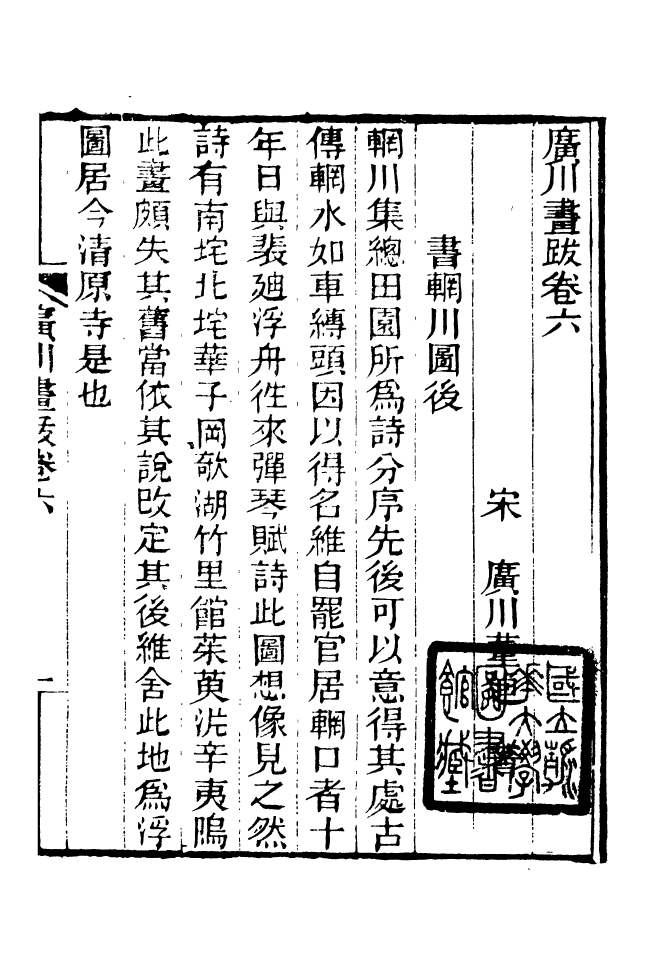 廣川畫跋卷六
宋　廣川董
書輞川圖後
輞川集總田園所爲詩分序先後可以意得其處古
傳輞水如車縳頭因以得名維自罷官居輞口者十
年日與裴廸浮舟徃來彈琴賦詩此圖想像見之然
詩有南垞北垞華子岡欹湖竹里館茱萸沜辛夷隖
此畫頗失其舊當依其說改定其後維舍此地爲浮
圖居今清原寺是也
廣川畫跋卷六
一
國立
大學
圖書
館藏